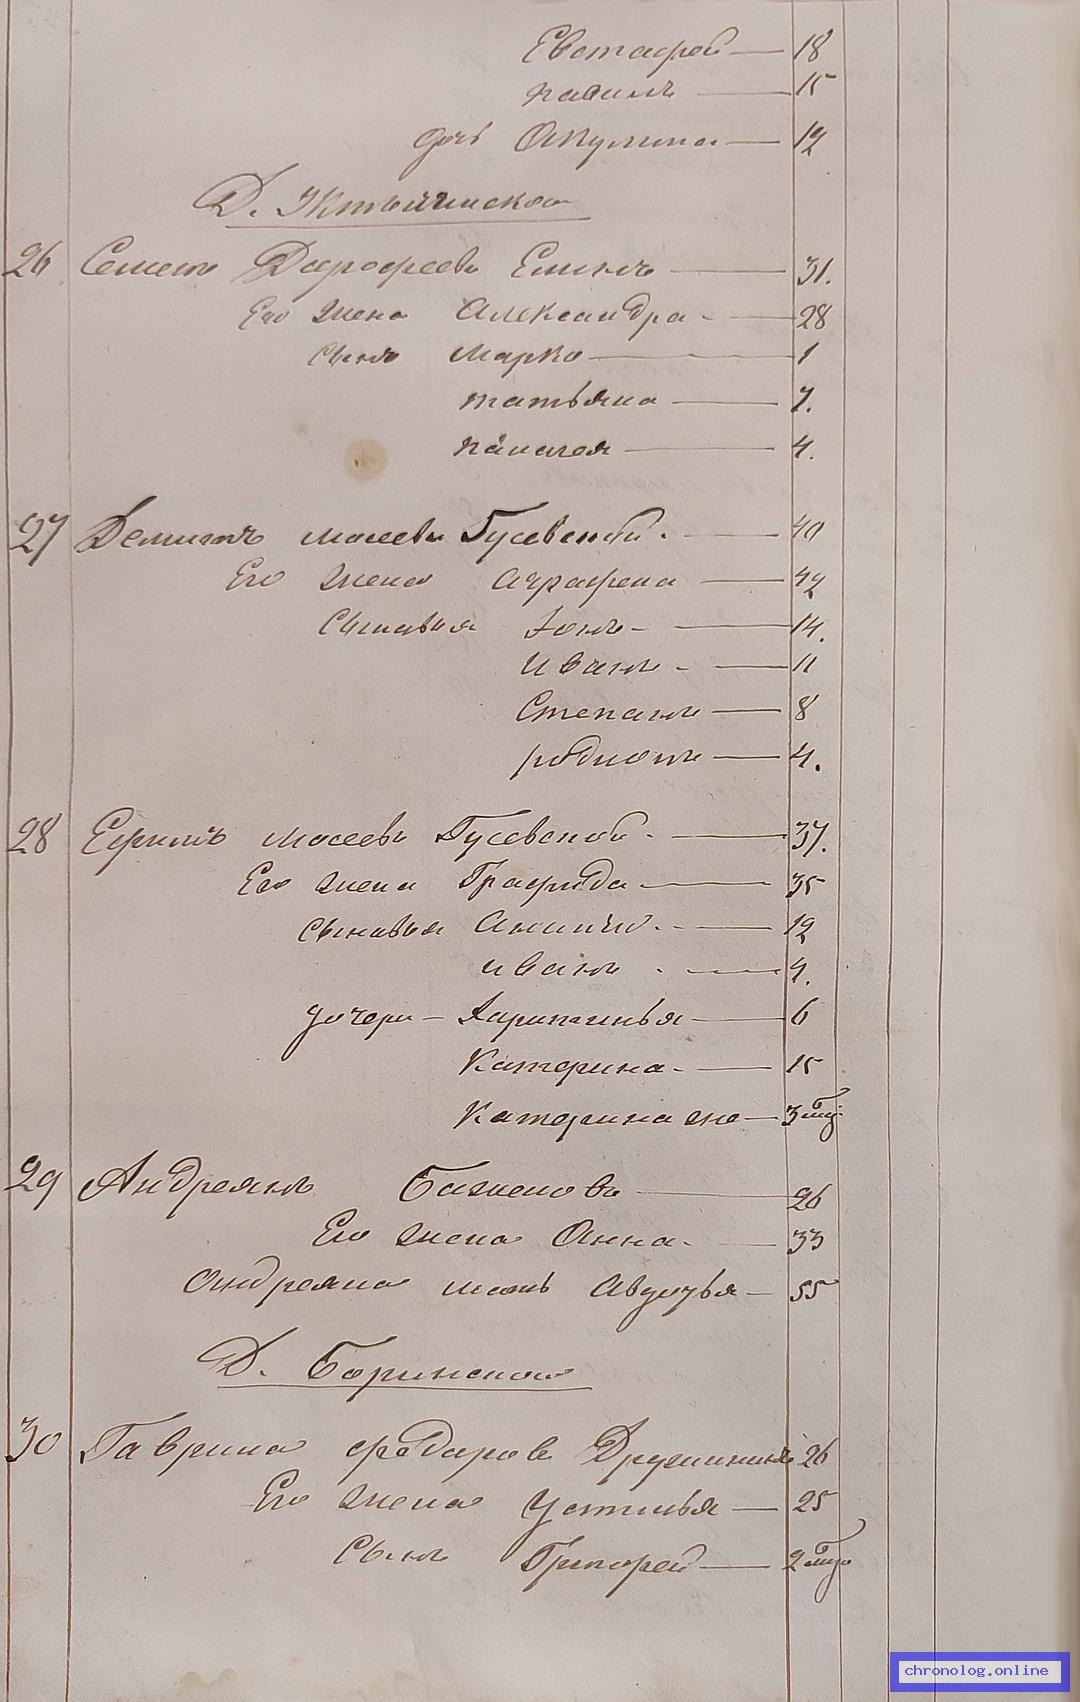 Евстафей — 18
павилъ — 15
дочь Окулина — 12
Д. Иктыинской
26 Семенъ Дарофеевъ Елинъ — 31.
Его жена Александра — 28
сынъ Марко — 1
татьяна — 7.
палагея — 4.
27 Демианъ Мосеевъ Гусевской — 40
Его жена аграфена — 42
Сыновья Іонъ — 14.
иванъ — 11
Степанъ — 8
родионъ — 4.
28 Ефимъ Мосеевъ Гусевской — 37.
Его жена Графида — 35
сыновья — 12
иванъ — 4.
дочери — — 6
Катерина — 15
Катерина же — 3 мц
29 Андреянъ Баженовъ — 26
Его жена Анна — 33
Андреяна мать Авдотья — 55
Д. Боринской
30 Гаврила федоровъ Дружининъ 26
Его жена Устинья — 25
Сынъ Григорей — 2 мц
chronolog.online